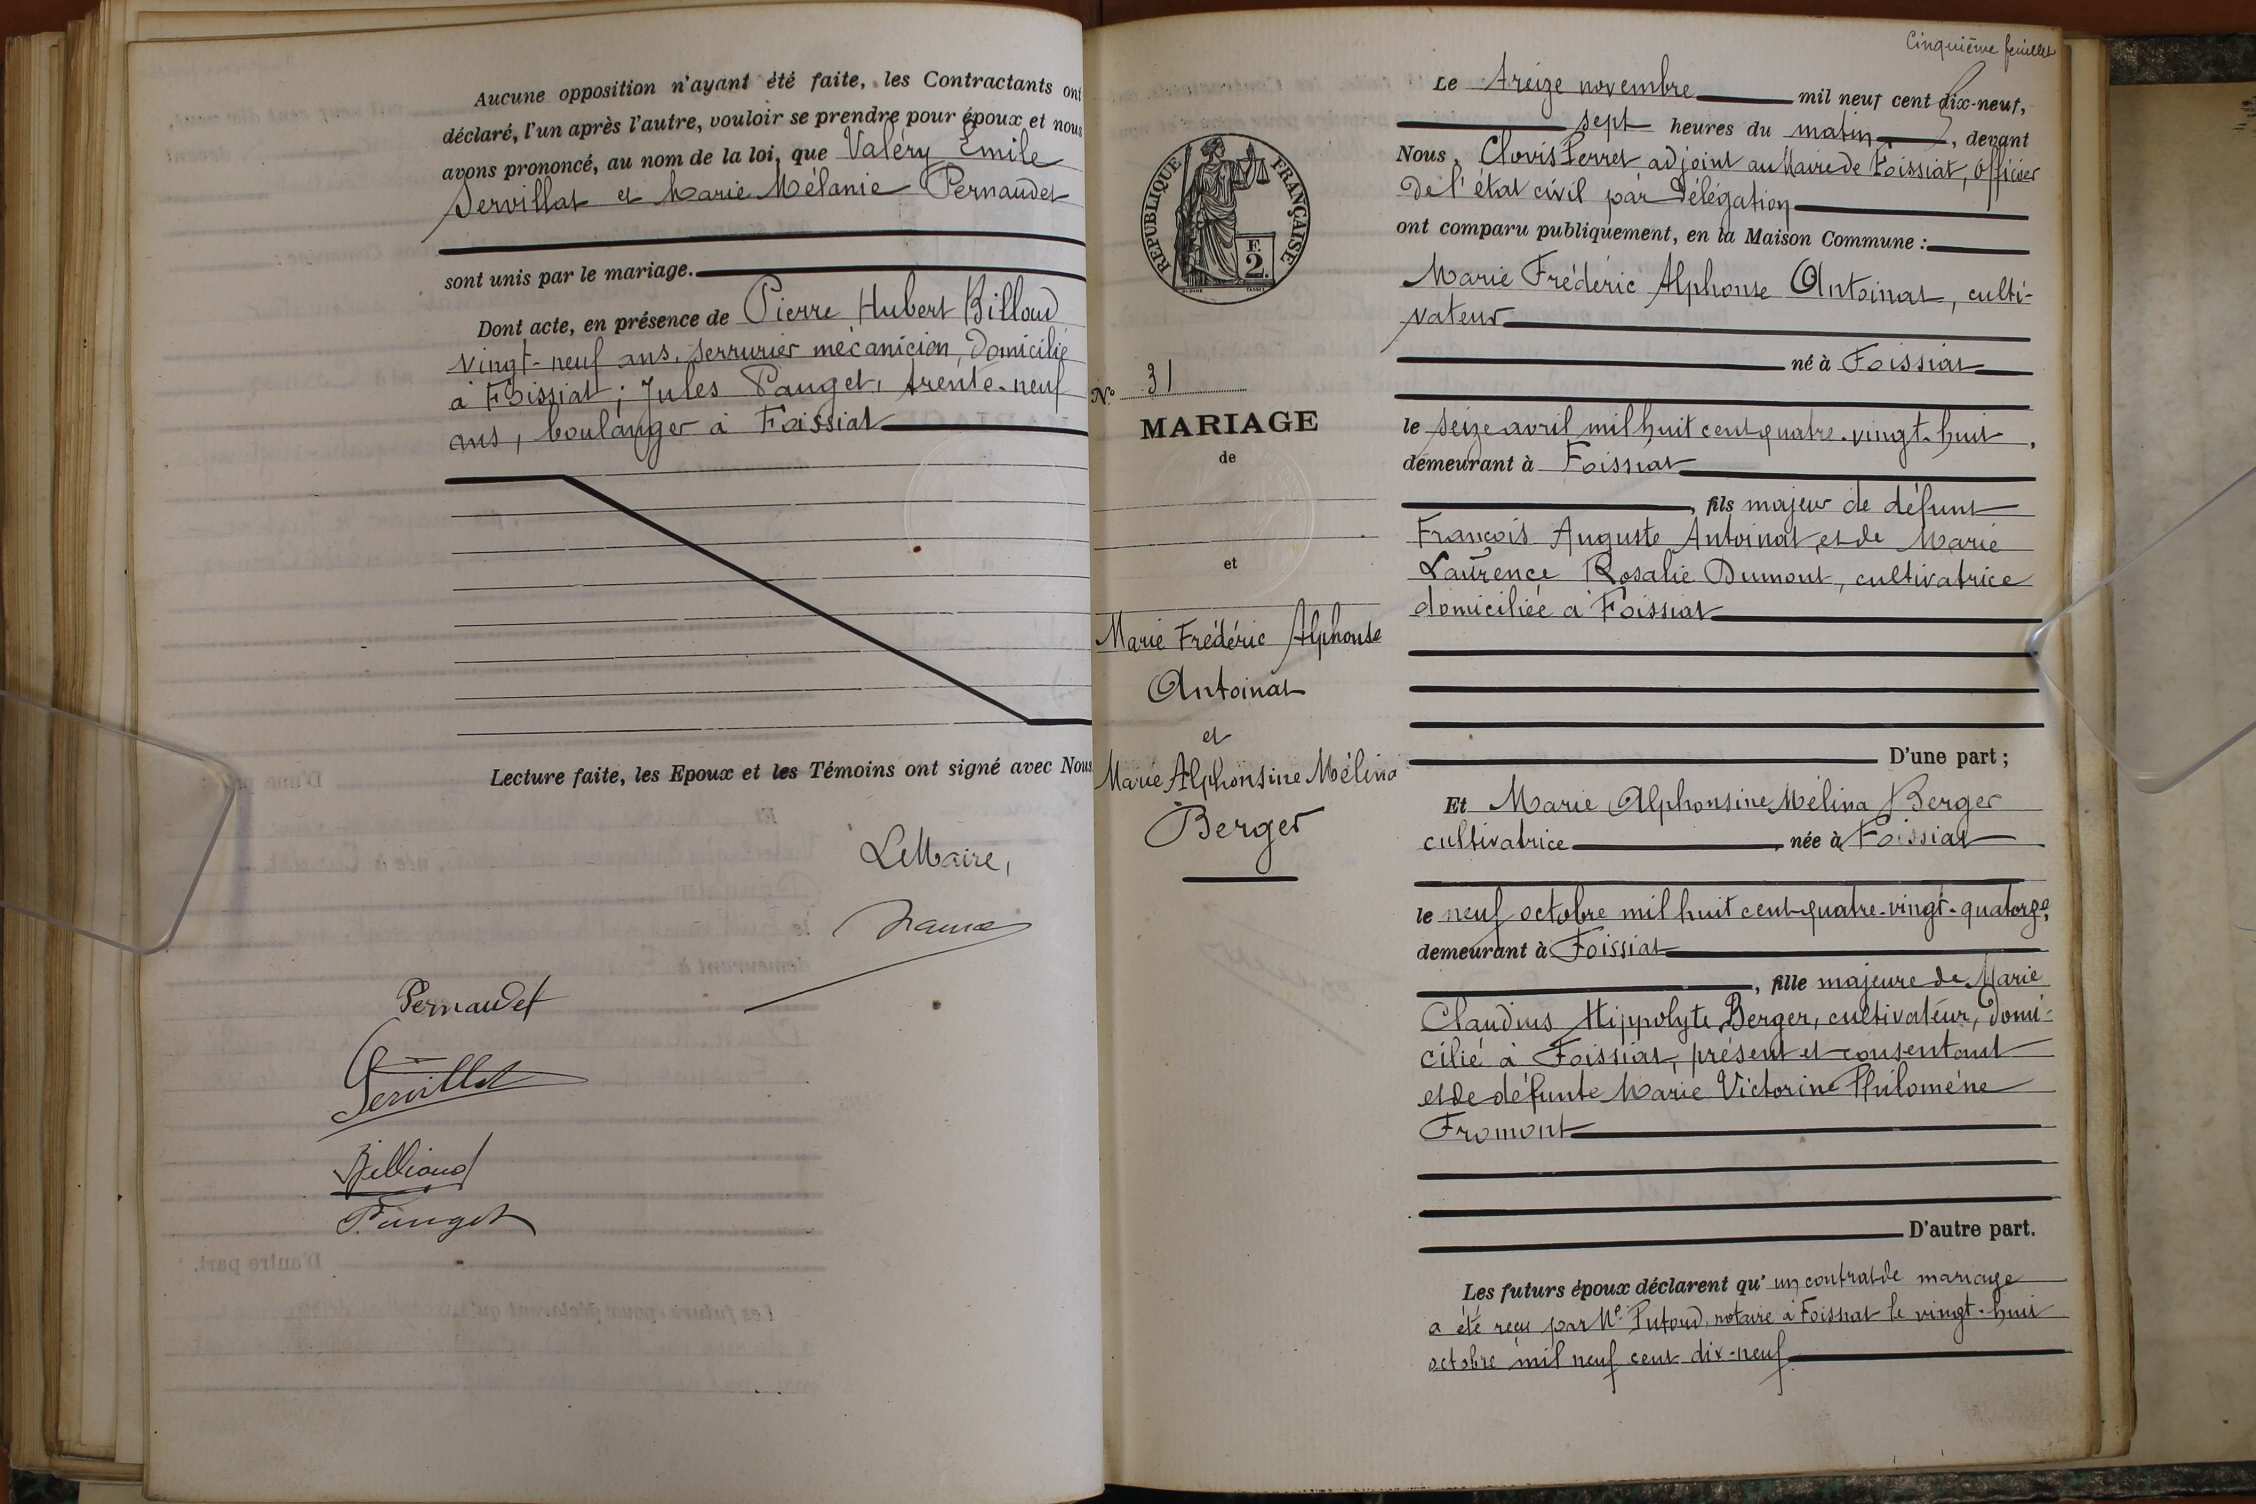 Aucune opposition n'ayant été faite, les Contractants ont
déclaré, l'un après l'autre, vouloir se prendre pour époux et nous
avons prononcé, au nom de la loi, que Valéry Emile
Servillat et Marie Mélanie Pernaudet
sont unis par le mariage.
Dont acte, en présence de Pierre Hubert Billoud
vingt-neuf ans, serrurier mécanicien, domicilié
à Foissiat ; Jules Pauget, trente-neuf
ans, boulanger à Foissiat
Lecture faite, les Epoux et les Témoins ont signé avec Nous
Le Maire,
Pernaudet
Servillat
Billioud
Pauget
Cinquième feuillet
RÉPUBLIQUE FRANÇAISE
F.
2.
N° 31
MARIAGE
de
et
Marie Frédéric Alphonse
Antoinat
et
Marie Alphonsine Mélina
Berger
Le treize novembre mil neuf cent dix-neuf,
sept heures du matin, devant
Nous, Clovis Perret adjoint au Maire de Foissiat, Officier
de l'état civil par délégation
ont comparu publiquement, en la Maison Commune :
Marie Frédéric Alphonse Antoinat, culti-
vateur
né à Foissiat
le seize avril mil huit cent quatre-vingt-huit,
demeurant à Foissiat
, fils majeur de défunt
François Auguste Antoinat et de Marie
Laurence Rosalie Dumont, cultivatrice
domiciliée à Foissiat
D'une part ;
Et Marie Alphonsine Mélina Berger
cultivatrice, née à Foissiat
le neuf octobre mil huit cent quatre-vingt-quatorze,
demeurant à Foissiat
, fille majeure de Marie
Claudius Hippolyte Berger, cultivateur, domi-
cilié à Foissiat, présent et consentant
et de défunte Marie Victorine Philomène
Fromont
D'autre part.
Les futurs époux déclarent qu'un contrat de mariage
a été reçu par Me Putoud, notaire à Foissiat le vingt-huit
octobre mil neuf cent dix-neuf